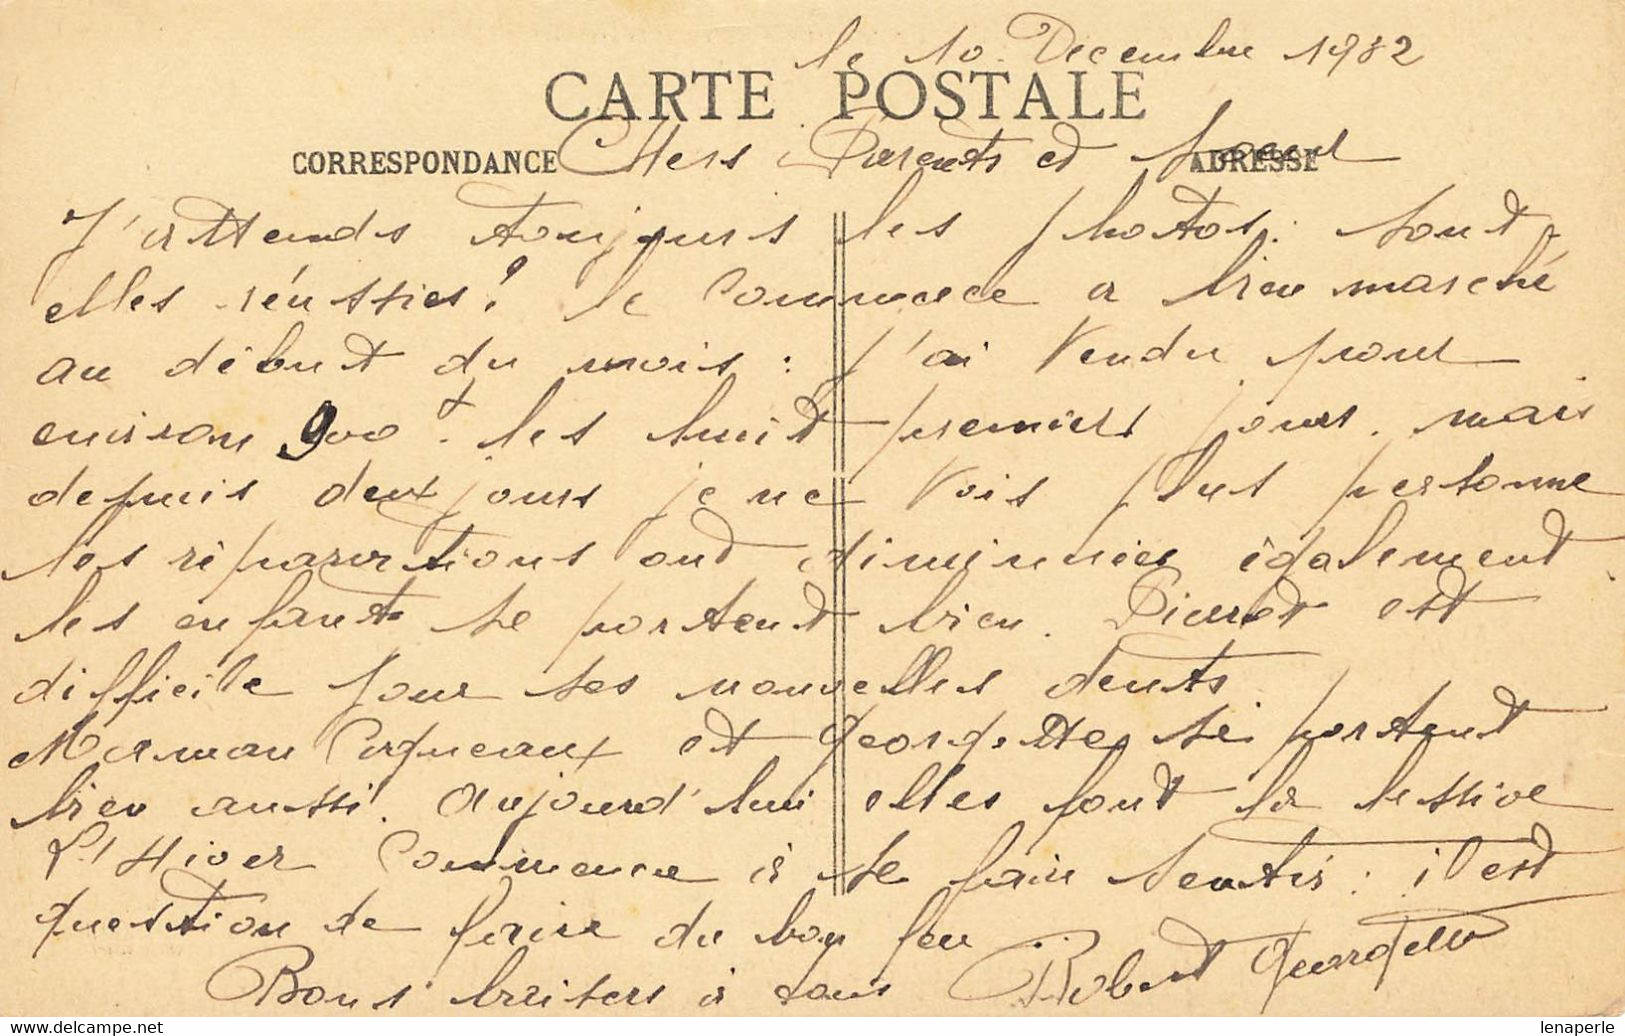 le 10 Decembre 1932
CARTE POSTALE
CORRESPONDANCE
Chers Parents et Soeur
ADRESSE
J'attends toujours les photos. sont
elles réussies? le Commerce a bien marché
au début du mois : j'ai Vendu pour
environ 900f les huit premiers jours. mais
depuis deux jours je ne Vois plus personne
les réparations ont diminuées également.
les enfants se portent bien. Pierrot est
difficile pour ses nouvelles dents
Maman et Georgette se portent
bien aussi. Aujourd'hui elles font la lessive
L'Hiver Commence à se faire sentir : il est
question de faire du bon feu
Bons baisers à tous Robert
lenaperle